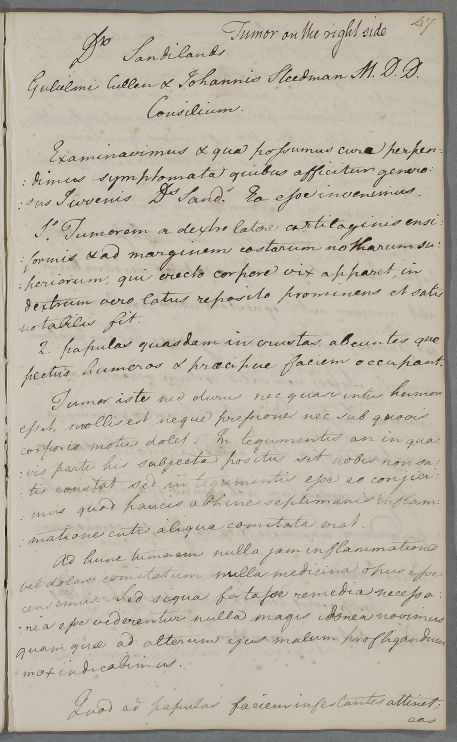 47
Tumor on the right side
Dr Sandilands
Gulielmi Cullen & Johannis Steedman M. D. D.
Consilium.
Examinavimus & qua possumus cura perpen:
:dimus symptomata quibus afficitur genero:
:sus Juvenis Ds Sand. Ea esse invenimus
1o. Tumorem a dextro latere cartilaginis ensi:
:formis & ad marginem costarum notharum su:
:periorum, qui erecto corpore vix apparet, in
dextrum vero latus reposito prominens et satis
notabilis fit.
2. papulas quasdam in crustas abeuntes quæ
pectus humeros & præcipue faciem occupant.
Tumor iste nec durus nec quasi intus humor
esset, mollis est neque pressione nec sub quovis
corporis motu dolet. In tegumentis an in qua:
:vis parte his subjecta positus sit nobis non sa:
:tis constat sed in tegumentis esse eo conjici:
:mus quod paucis abhinc septimanis inflam:
:matione cutis aliqua comitata erat.
Ad hunc tumorem nulla jam inflammatione
vel dolore comitatum nulla medicina opus esse
censemus. Sed siqua fortasse remedia necessa:
:ria esse viderentur nulla magis idonea novimus
quam quæ ad alterum ejus malum profligandum
mox indicabimus.
Quod ad papulas faciem infestantes attinet:
eas